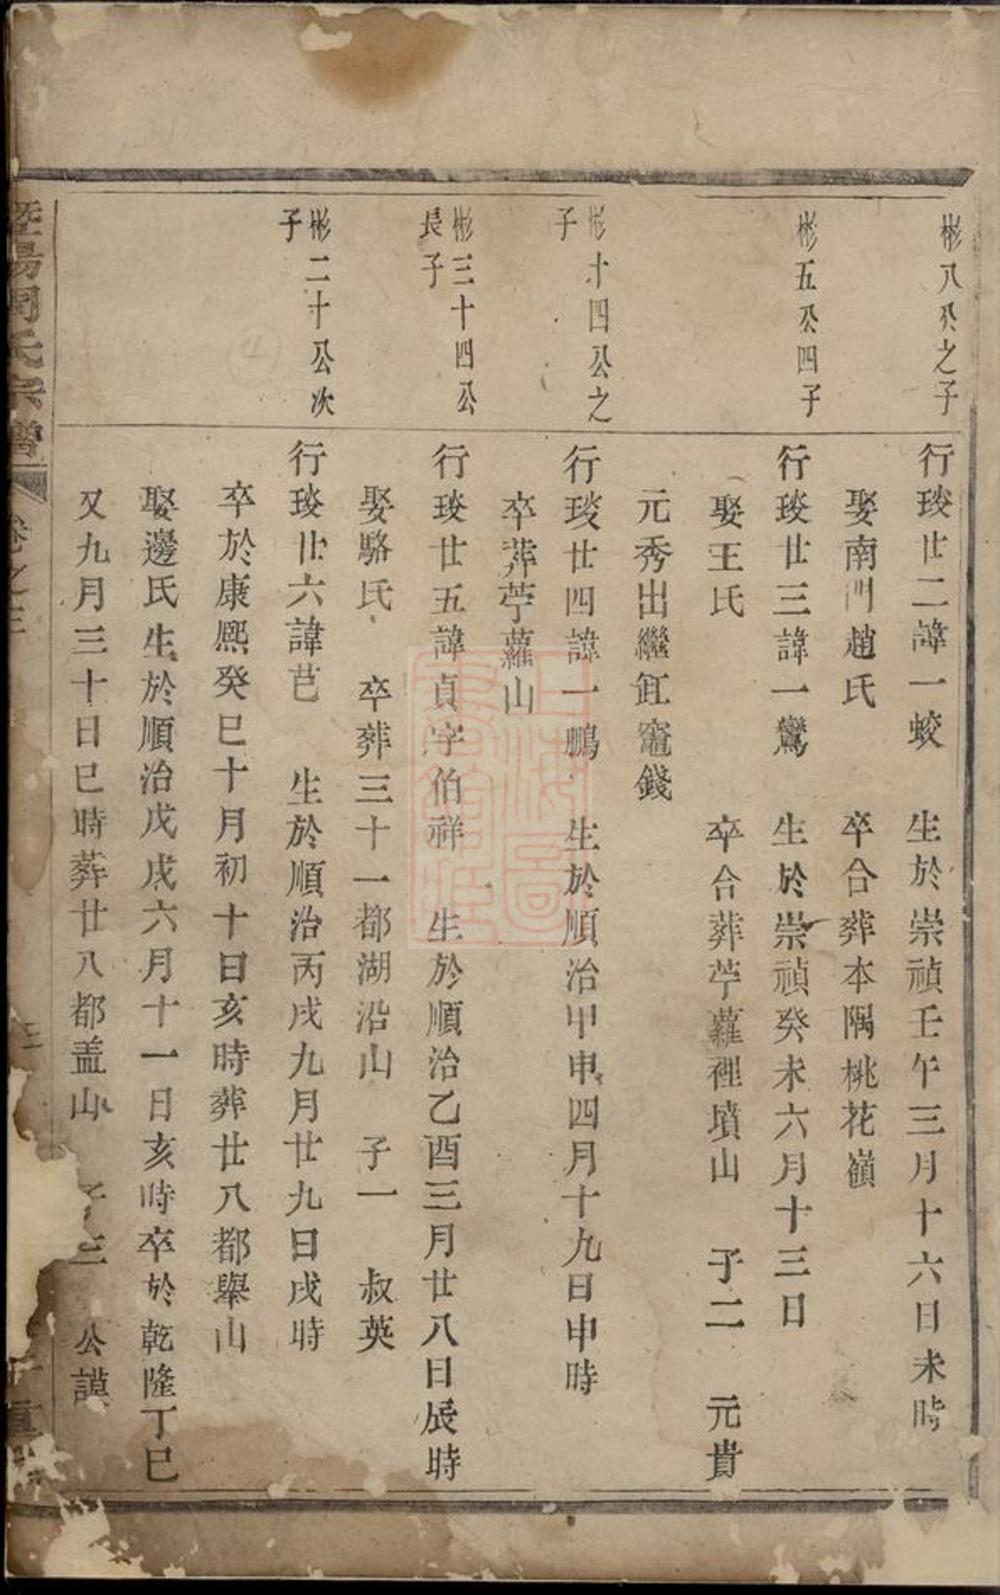 彬八公之子
行琰廿二諱一蛟 生於崇禎壬午三月十六日未時
娶南門趙氏 卒合葬本隅桃花嶺
彬五公四子
行琰廿三諱一鸞 生於崇禎癸未六月十三日
娶王氏 卒合葬苧蘿裡墳山 子二 元貴
元秀出繼缸竈錢
彬十四公之
子
行琰廿四諱一鵬 生於順治甲申四月十九日申時
卒葬苧蘿山
彬三十四公
長子
行琰廿五諱貞字伯祥 生於順治乙酉三月廿八日辰時
娶駱氏 卒葬三十一都湖沿山 子一 叔英
彬二十公次
子
行琰廿六諱芑 生於順治丙戌九月廿九日戌時
卒於康熙癸巳十月初十日亥時葬廿八都舉山
娶邊氏生於順治戊戌六月十一日亥時卒於乾隆丁巳
又九月三十日巳時葬廿八都盖山 子三 公謨
暨陽周氏宗譜 卷之三